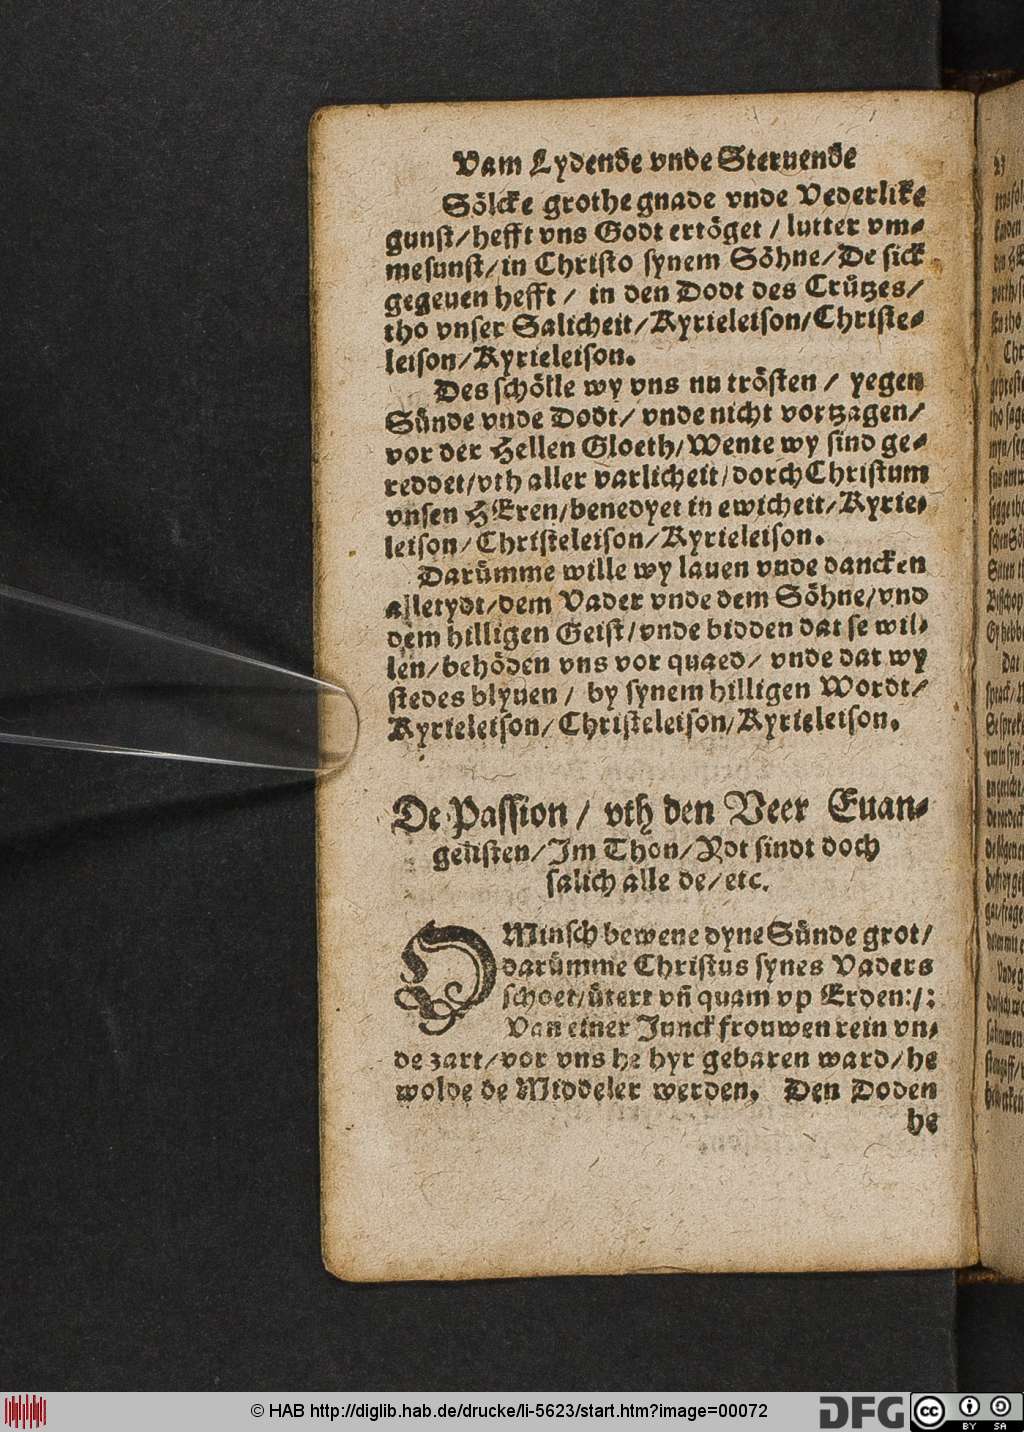 Vam Lydendẽ vnde Steruendẽ
Sölcke grothe gnade vnde Vederlike
gunst/hefft vns Godt ertöget / lutter vm⸗
mesunst/in Christo synem Söhne/De sick
gegeuen hefft / in den Dodt des Crützes/
tho vnser Salicheit/Kyrieleison/Christe⸗
leison/Kyrieleison.
Des schölle wy vns nu trösten / yegen
Sünde vnde Dodt/ vnde nicht vortzagen/
vor der Hellen Gloeth/Wente wy sind ge⸗
reddet/vth aller varlicheit/dorch Christum
vnsen HEren/benedyet in ewicheit/Kyrie⸗
leison/Christeleison/Kyrieleison.
Darümme wille wy lauen vnde dancken
alletydt/dem Vader vnde dem Söhne/vnd
dem hilligen Geist/vnde bidden dat se wil⸗
len/behöden vns vor quaed/ vnde dat wy
stedes blyuen / by synem hilligen Wordt/
Kyrieleison/Christeleison/Kyrieleison.
De Passion / vth den Veer Euan⸗
gelisten/Im Thon/Not sindt doch
salich alle de/etc.
O Minsch bewene dyne Sünde grot/
darümme Christus synes Vaders
schoet/ütert vñ quam vp Erden:/:
Van einer Junckfrouwen rein vn⸗
de zart/vor vns he hyr gebaren ward/he
wolde de Middeler werden. Den Doden
he
© HAB http://diglib.hab.de/drucke/li-5623/start.htm?image=00072
DFG
cc
BY SA